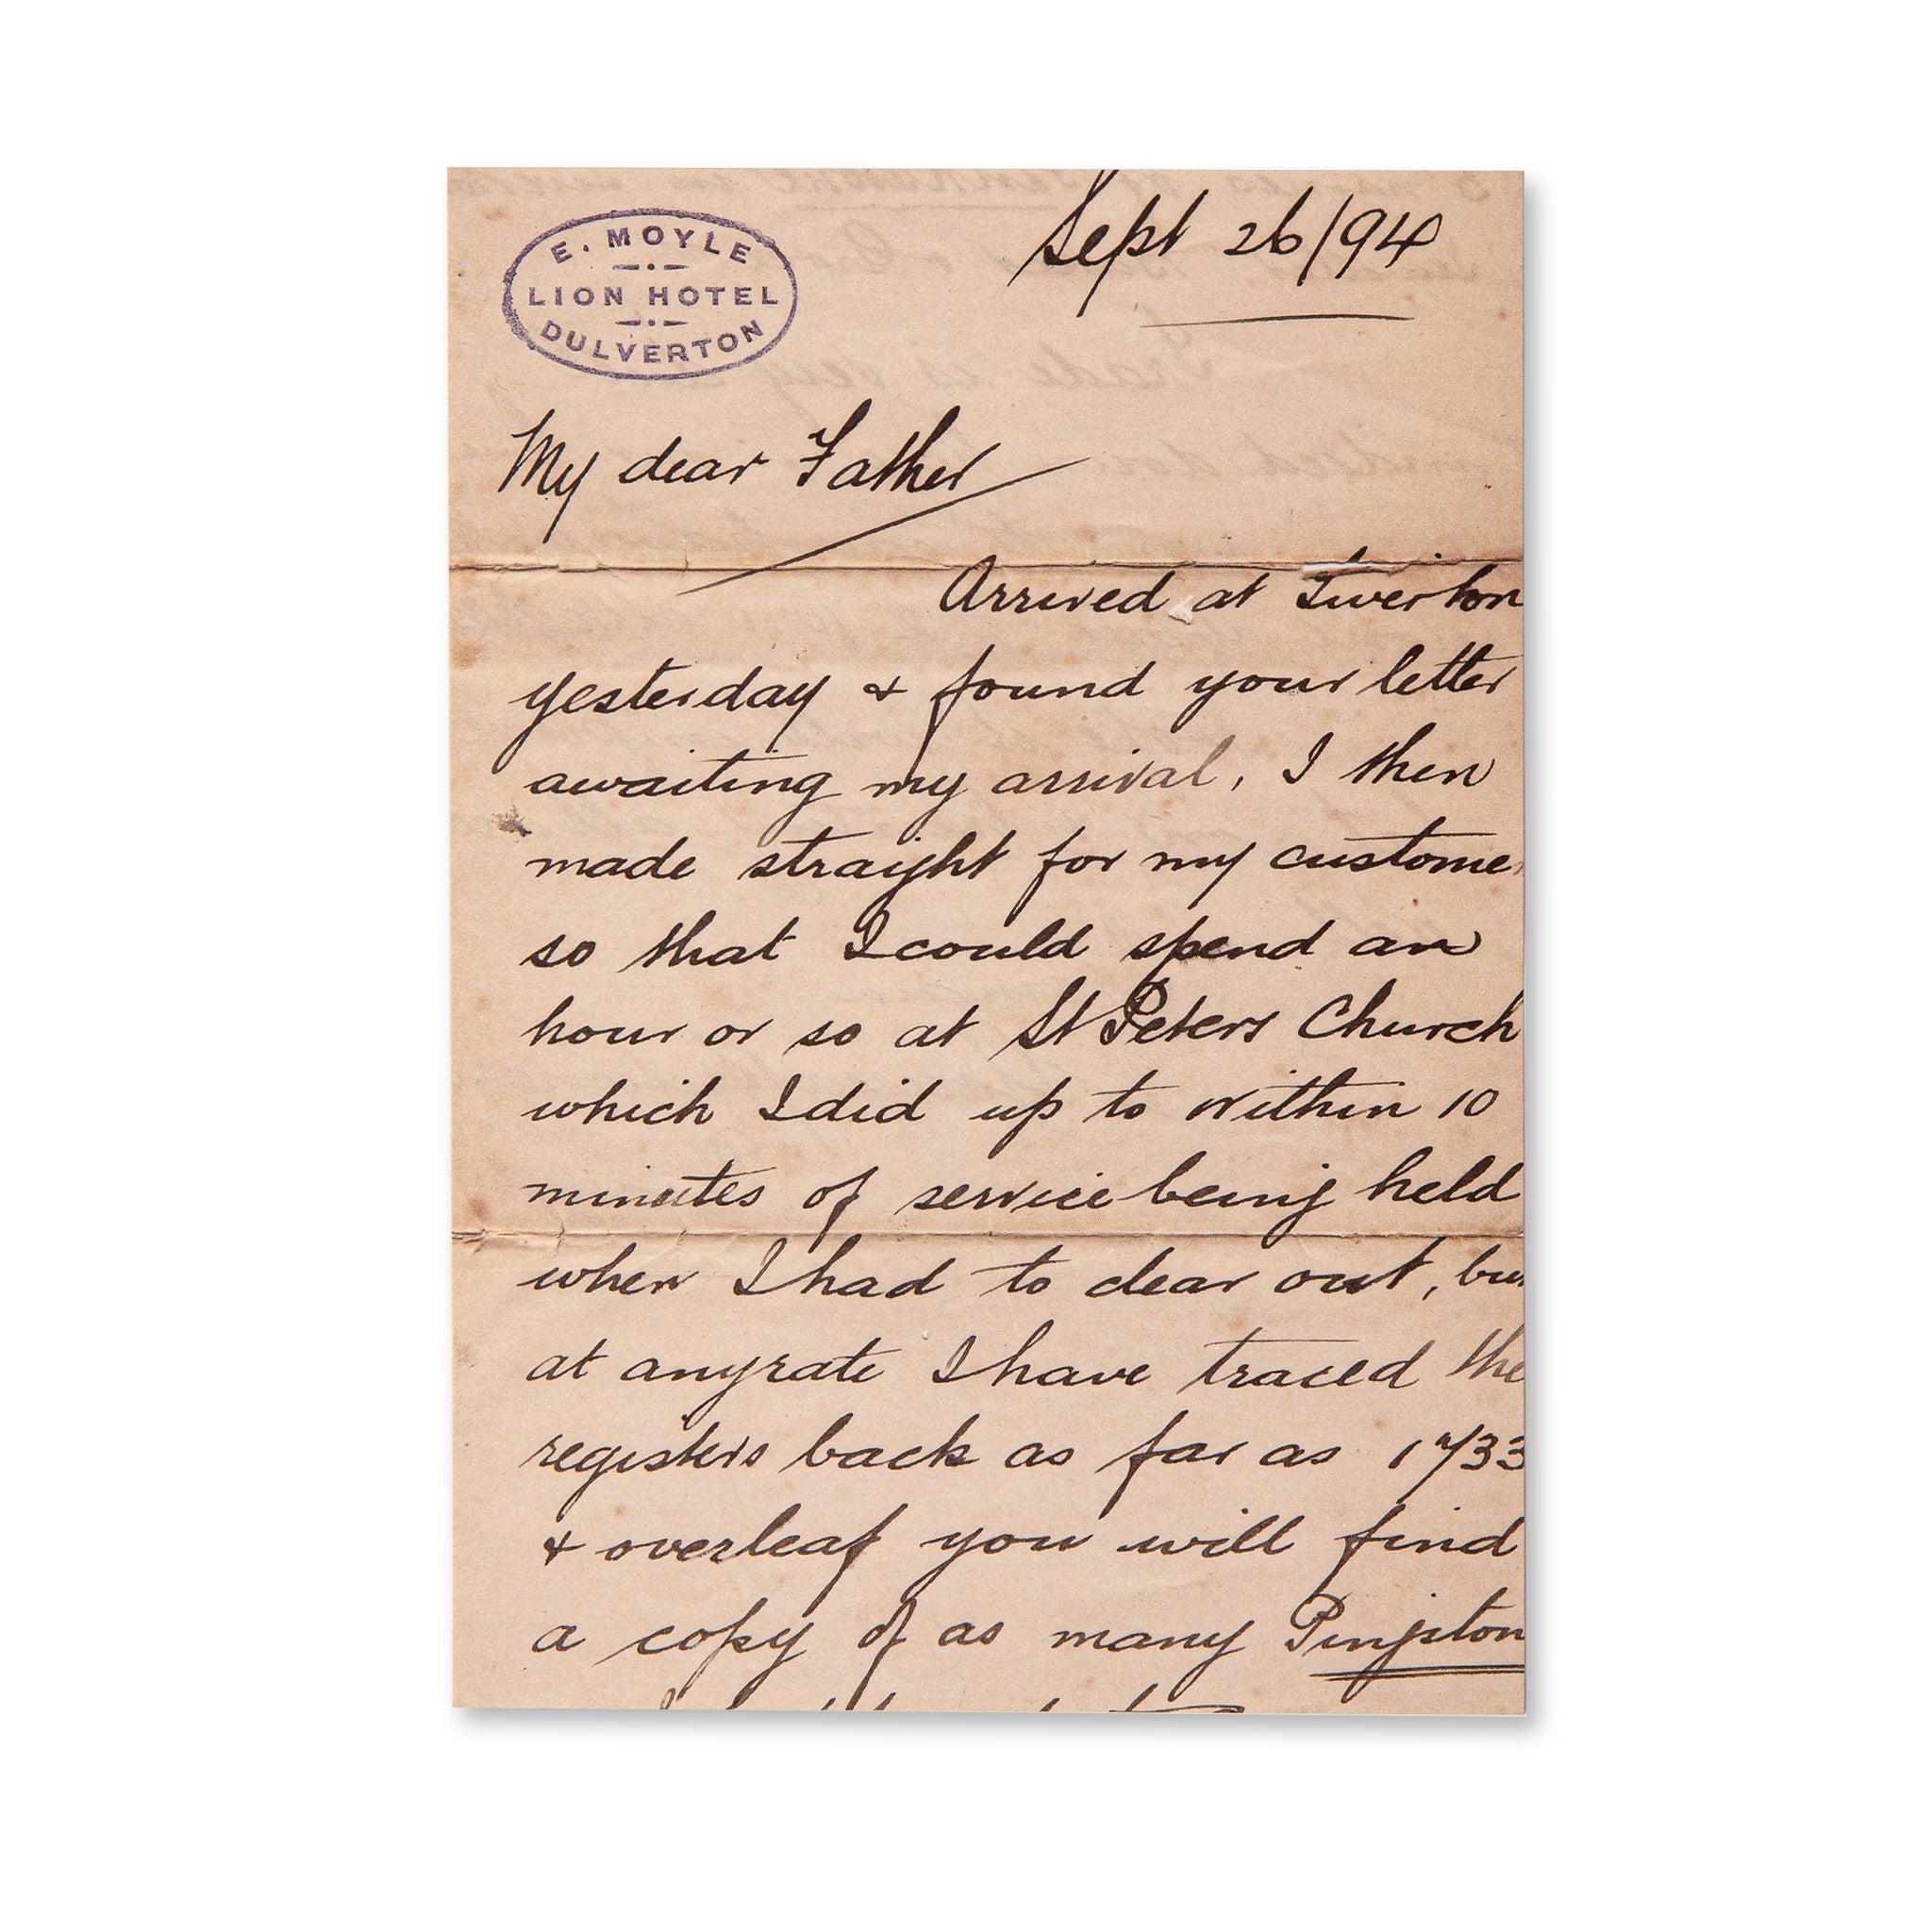 E. MOYLE
LION HOTEL
DULVERTON
Sept 26/94
My dear Father
Arrived at Tiverton
yesterday & found your letter
awaiting my arrival, I then
made straight for my custome
so that I could spend an
hour or so at St Peters Church
which I did up to within 10
minutes of service being held
when I had to clear out, but
at anyrate I have traced the
registers back as far as 1733
& overleaf you will find
a copy of as many Pingston